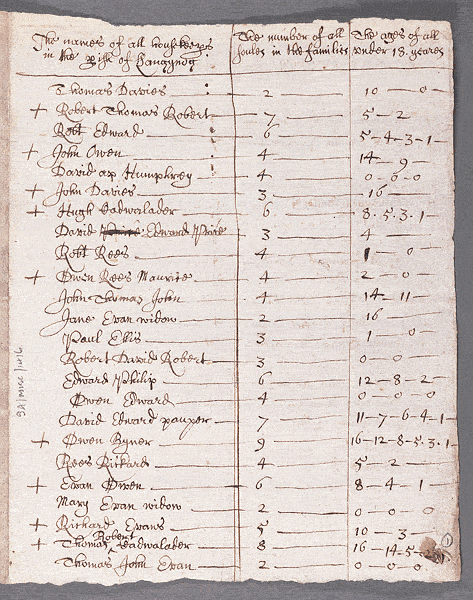 The names of all housekeeps The number of all The ages of all
in the psh of Llangynog soules in the families under 18 yeares
Thomas Davies 2 10 - 0 -
+ Robert Thomas Robert 7 5 - 2 -
Robt Edward 6 5 - 4 - 3 - 1 -
+ John Owen 4 14 - 9 -
David ap Humphrey 4 0 - 0 - 0
+ John Davies 3 16
+ Hugh Cadwalader 6 8 . 5 . 3 . 1 -
David Edward 3 4
Robt Rees 4 1 - 0
+ Owen Rees Maurice 4 2 - 0
John Thomas John 4 14 - 11
Jane Evan widow 2 16
Paul Ellis 3 1 0
Robert David Robert 3 0 - 0
Edward Philip 6 12 - 8 - 2 -
Owen Edward 4 0 - 0 - 0
David Edward pauper 7 11 - 7 - 6 - 4 - 1
+ Owen Byner 9 16 - 12 - 8 - 5 . 3 . 1
Rees Rickard 4 5 - 2
+ Evan Owen 6 8 - 4 - 1
Mary Evan widow 2 0 - 0 - 0
+ Richard Evans 5 10 - 3
+ Thomas Robert Cadwalader 8 16 - 14 - 5
Thomas John Evan 2 0 - 0 - 0
SA/MISC/1416